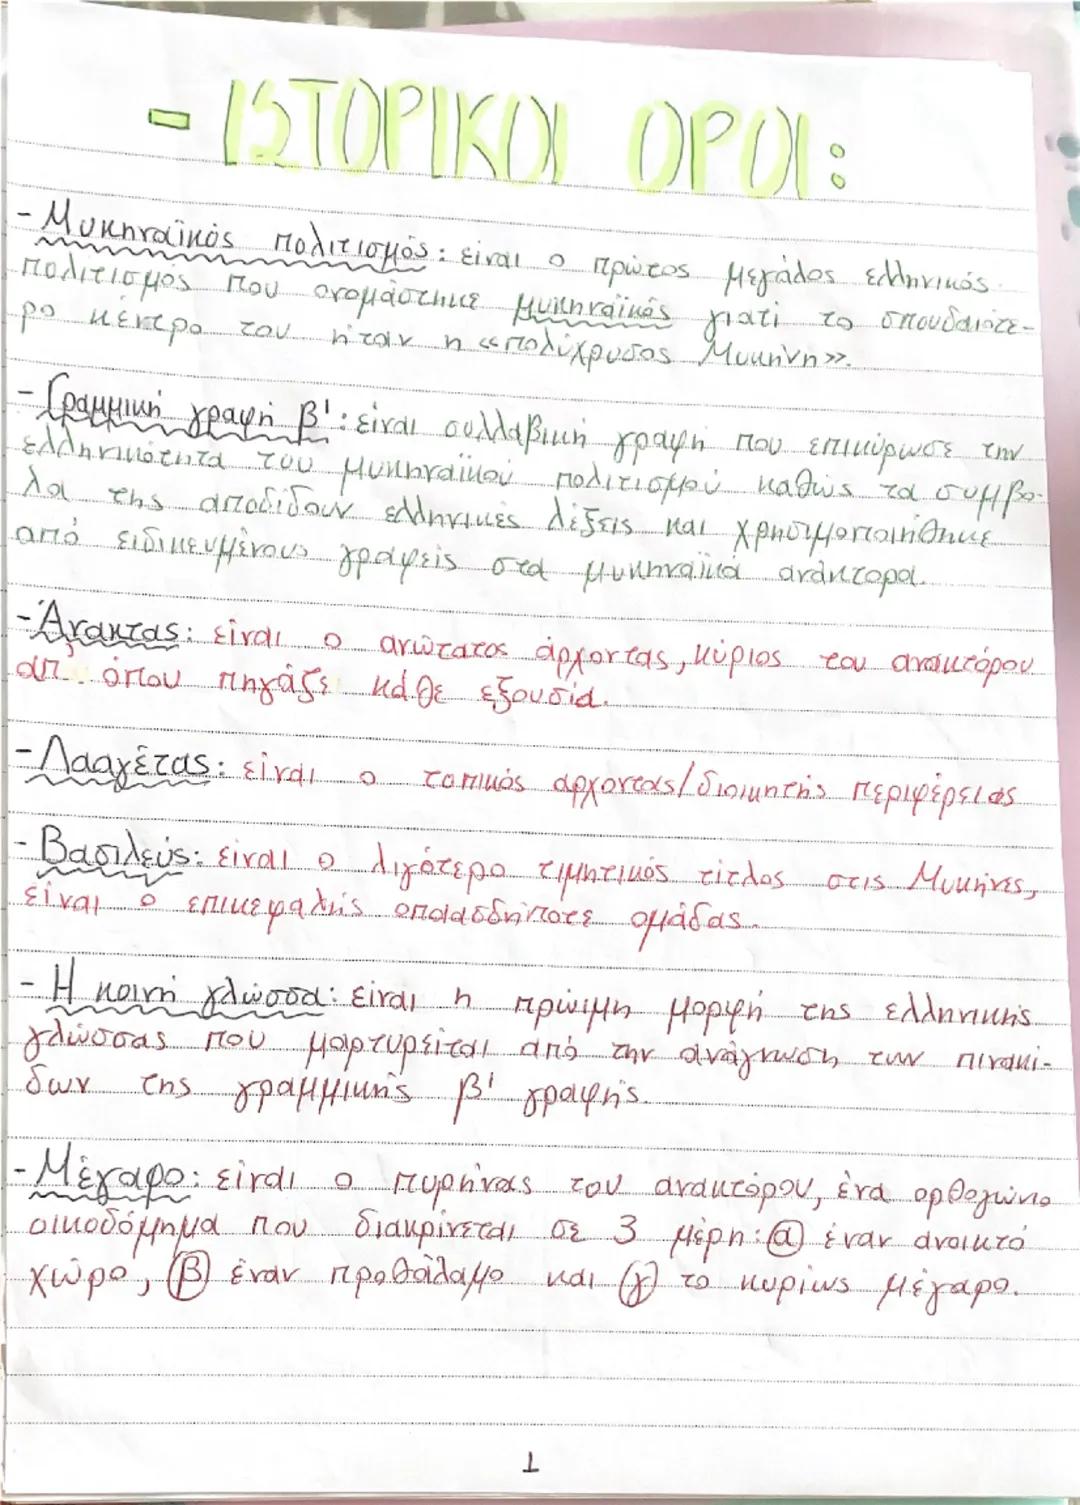 - ΙΣΤΟΡΙΚΟΙ ΟΡΟΙ:
- Μυκηναϊκός πολιτισμός: είναι ο πρώτος μεγάλος ελληνικός
πολιτισμός που ονομάστηκε μυκηναϊκός γιατί το σπουδαιότε-
ρο κέντρο του ήταν η «πολύχρυσος Μυκήνη».
- Γραμμική γραφή Β': είναι συλλαβική γραφή που επικύρωσε την
ελληνικότητα του μυκηναϊκού πολιτισμού καθώς τα σύμβο-
λα της αποδίδουν ελληνικές λέξεις και χρησιμοποιήθηκε
από ειδικευμένους γραφείς στα μυκηναϊκά ανάκτορα.
- Άνακτας: είναι ο ανώτατος άρχοντας, κύριος του ανακτόρου
απ' όπου πηγάζε κάθε εξουσία.
- Λααγέτας: είναι ο τοπικός άρχοντας/διοικητής περιφέρειας
- Βασιλεύς: είναι ο λιγότερο τιμητικός τίτλος στις Μυκήνες,
είναι ο επικεφαλής οποιασδήποτε ομάδας.
- Η κοινή γλώσσα: είναι η πρώιμη μορφή της ελληνικής
γλώσσας που μαρτυρείται από την ανάγνωση των πινακί-
δων της γραμμικής β' γραφής.
- Μέγαρο: είναι ο πυρήνας του ανακτόρου, ένα ορθογώνιο
οικοδόμημα που διακρίνεται σε 3 μέρη: α έναν ανοικτό
χώρο, β έναν προθάλαμο και γ το κυρίως μέγαρο.
1